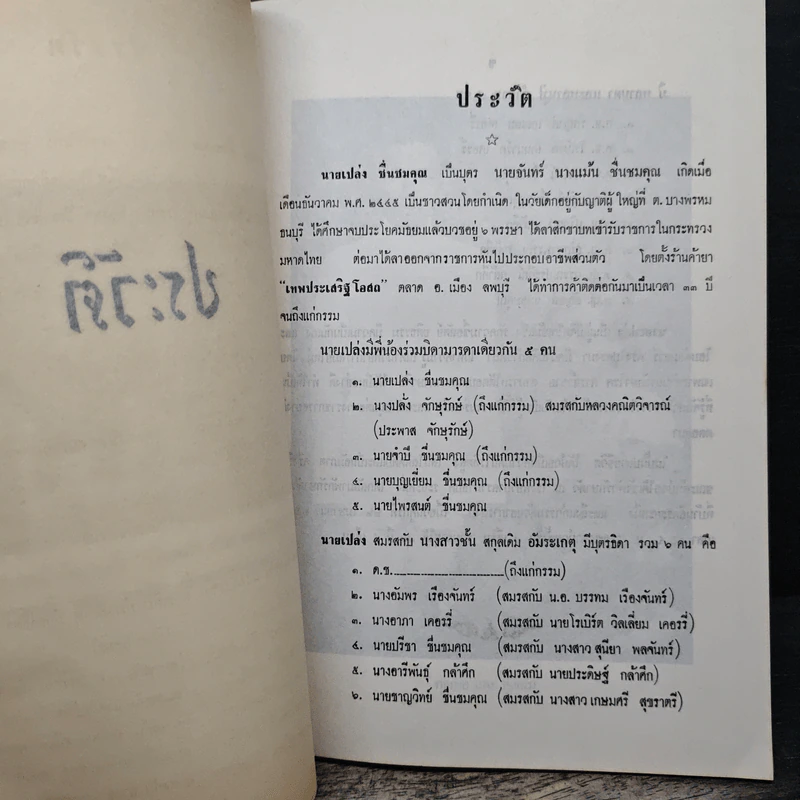 ประวัติ
ประวัติ
☆
นายเปล่ง ชื่นชมคุณ เป็นบุตร นายจันทร์ นางแม้น ชื่นชมคุณ เกิดเมื่อ
เดือนธันวาคม พ.ศ. ๒๔๔๕ เป็นชาวสวนโดยกำเนิด ในวัยเด็กอยู่กับญาติผู้ใหญ่ที่ ต. บางพรหม
ธนบุรี ได้ศึกษาจบประโยคมัธยมแล้วบวชอยู่ ๖ พรรษา ได้ลาสิกขาบทเข้ารับราชการในกระทรวง
มหาดไทย ต่อมาได้ลาออกจากราชการหันไปประกอบอาชีพส่วนตัว โดยตั้งร้านค้ายา
“เทพประเสริฐโอสถ” ตลาด อ. เมือง ลพบุรี ได้ทำการค้าติดต่อกันมาเป็นเวลา ๓๓ ปี
จนถึงแก่กรรม
นายเปล่งมีพี่น้องร่วมบิดามารดาเดียวกัน ๕ คน
๑. นายเปล่ง ชื่นชมคุณ
๒. นางปลั่ง จักษุรักษ์ (ถึงแก่กรรม) สมรสกับหลวงคณิตวิจารณ์
(ประพาส จักษุรักษ์)
๓. นายจำปี ชื่นชมคุณ (ถึงแก่กรรม)
๔. นายบุญเยี่ยม ชื่นชมคุณ (ถึงแก่กรรม)
๕. นายไพรสนต์ ชื่นชมคุณ
นายเปล่ง สมรสกับ นางสาวชั้น สกุลเดิม อัมระเกตุ มีบุตรธิดา รวม ๖ คน คือ
๑. ด.ช. ........................ (ถึงแก่กรรม)
๒. นางอัมพร เรืองจันทร์ (สมรสกับ น.อ. บรรทม เรืองจันทร์)
๓. นางอาภา เคอรรี่ (สมรสกับ นายโรเบิร์ต วิลเลี่ยม เคอรรี่)
๔. นายปรีชา ชื่นชมคุณ (สมรสกับ นางสาวสุนียา พลจันทร์)
๕. นางอารีพันธุ์ กล้าศึก (สมรสกับ นายประดิษฐ์ กล้าศึก)
๖. นายชาญวิทย์ ชื่นชมคุณ (สมรสกับ นางสาวเกษมศรี สุขราตรี)